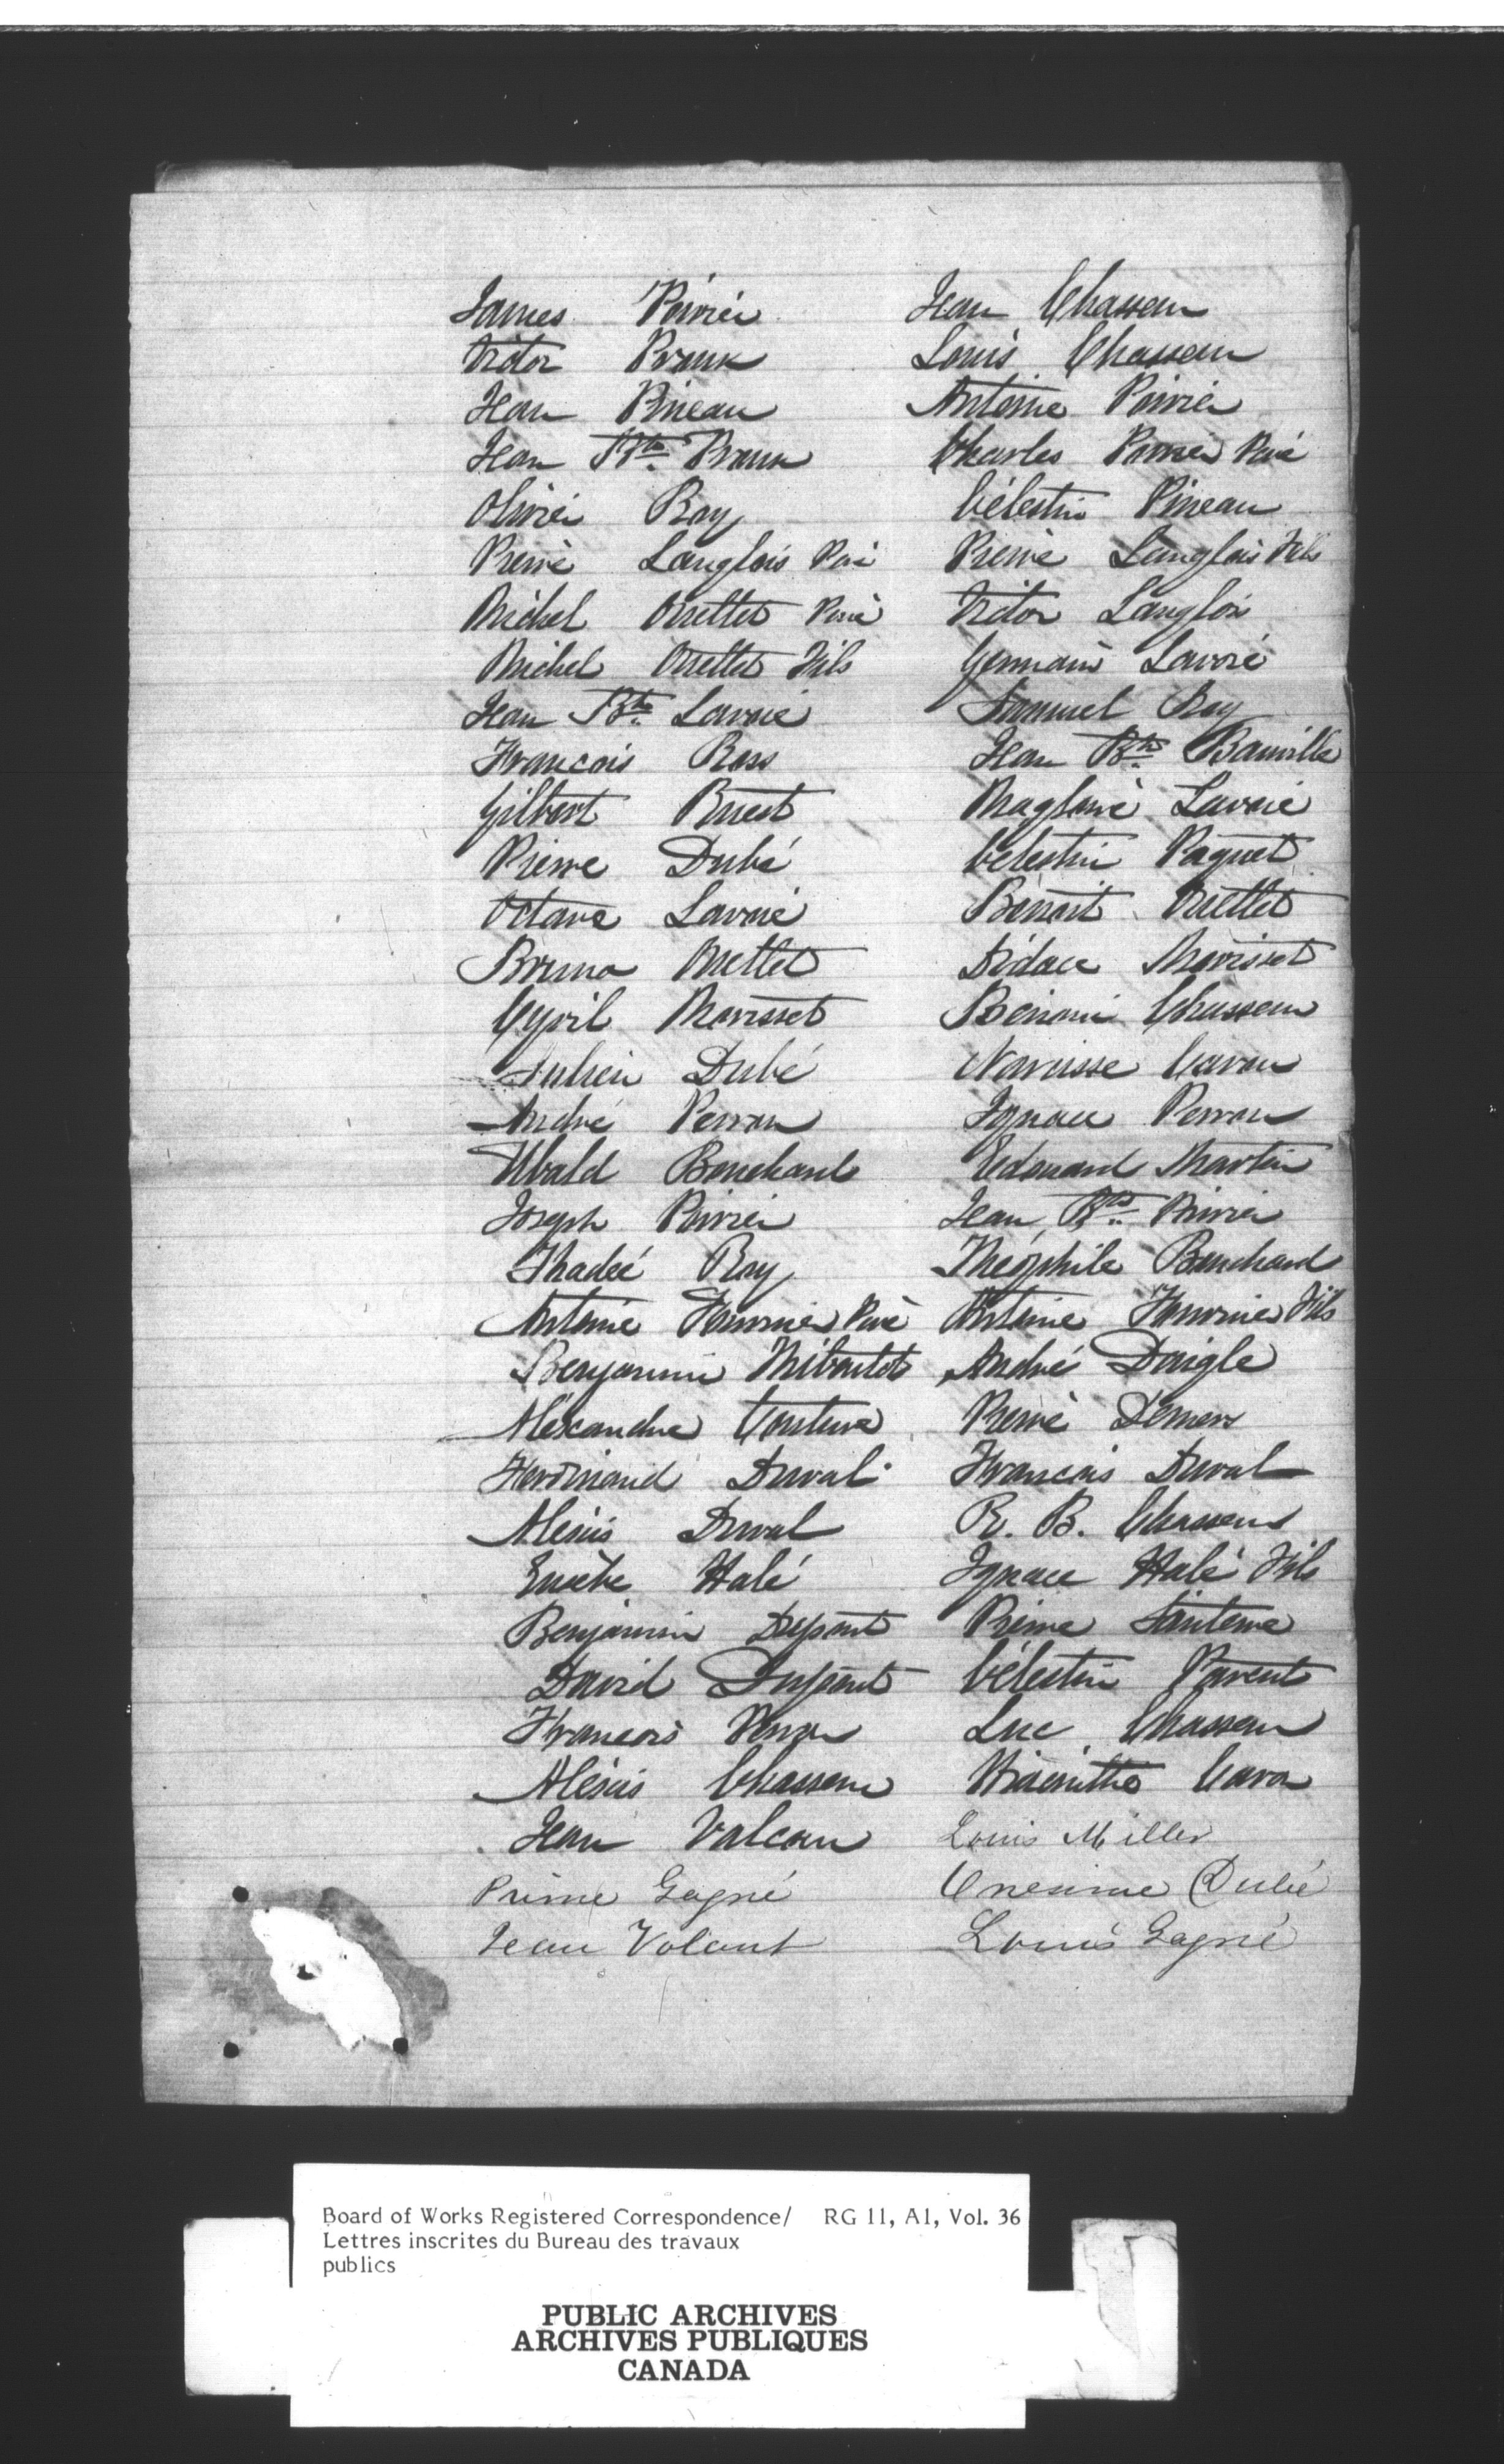 James Poirier Jean Chasseur
Victor Proux Louis Chasseur
Jean Pineau Antoine Poirier
Jean Bte Proux Charles Poirier Père
Olivier Roy Célestin Pineau
Pierre Langlois Père Pierre Langlois Fils
Michel Ouellet Père Victor Langlois
Michel Ouellet Fils Germain Lavoie
Jean Bte Lavoie Samuel Roy
François Ross Jean Bte Banville
Gilbert Ruest Magloire Lavoie
Pierre Dubé Célestin Paquet
Octave Lavoie Benoit Ouellet
Bruno Ouellet Didace Morisset
Cyril Morisset Benoni Chasseur
Julien Dubé Narcisse Caron
André Perron Ignace Perron
Ubald Bouchard Edouard Martin
Joseph Poirier Jean Bte Poirier
Thadée Roy Théophile Bouchard
Antoine Fournier Père Antoine Fournier Fils
Benjamin Thiboutot André Daigle
Aléxandre Couture Pierre Demers
Ferdinand Duval François Duval
Alexis Duval R. B. Chasseur
Eusèbe Halé Ignace Halé Fils
Benjamin Dupont Pierre
David Dupont Célestin Parent
François Perron Luc Chasseur
Alexis Chasseur Caron
Jean Louis Miller
Prime Gagné Onesime Dubé
Jean Volant Louis Gagné
Board of Works Registered Correspondence/ RG 11, A1, Vol. 36
Lettres inscrites du Bureau des travaux
publics
PUBLIC ARCHIVES
ARCHIVES PUBLIQUES
CANADA